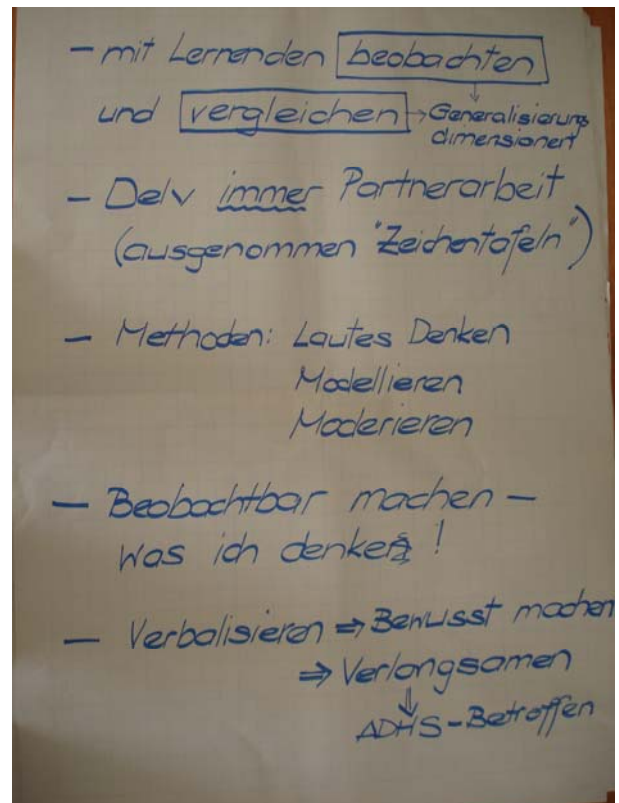 – mit Lernenden beobachten
↓
und vergleichen → Generalisierung
dimensioniert
– Delv immer Partnerarbeit
(ausgenommen "Zeichentafeln")
– Methoden: Lautes Denken
Modellieren
Moderieren
– Beobachtbar machen –
Was ich denke !
– Verbalisieren ⇒ Bewusst machen
⇒ Verlangsamen
⇓
ADHS-Betroffen